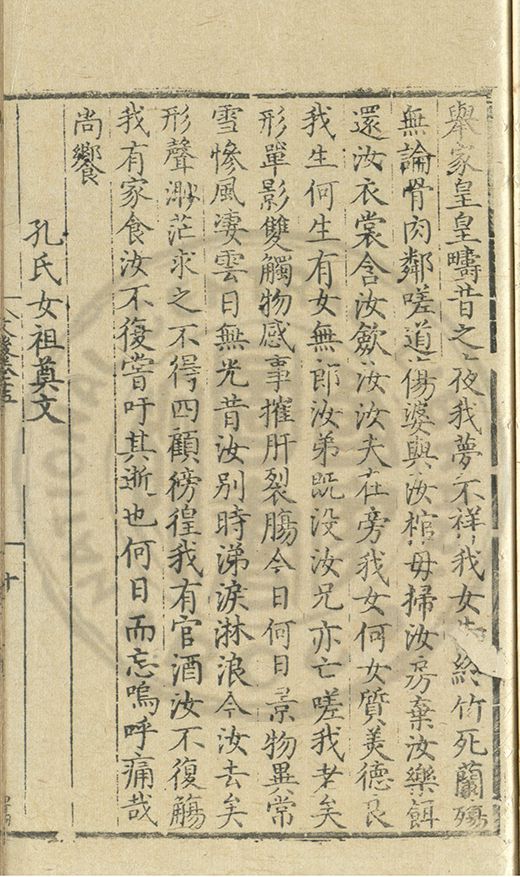 舉家皇皇疇昔之夜我夢不祥我女告終竹死蘭殤
無論骨肉鄰嗟道傷婆與汝棺母掃汝房棄汝藥餌
還汝衣裳含汝歛汝汝夫在旁我女何女質美德良
我生何生有女無郎汝弟旣没汝兄亦亡嗟我老矣
形單影雙觸物感事摧肝裂腸今日何日景物異常
雪慘風凄雲日無光昔汝别時涕淚淋浪今汝去矣
形聲渺茫求之不得四顧徬徨我有官酒汝不復觴
我有家食汝不復嘗吁其逝也何日而忘嗚呼痛哉
尚饗
孔氏女祖奠文
十